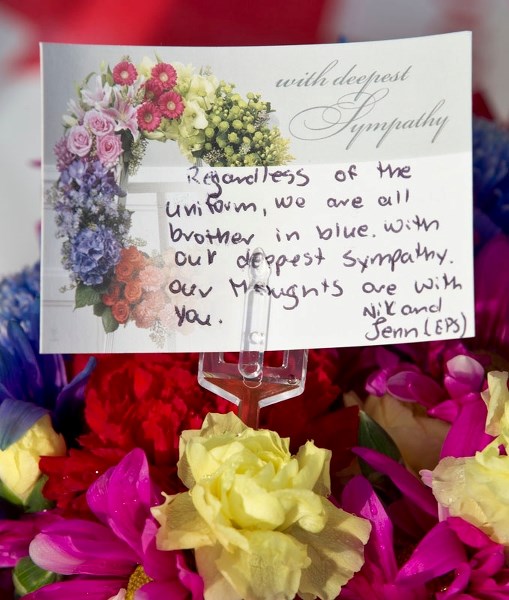 with deepest
Sympathy
Regardless of the
uniform, we are all
brother in blue. with
our deepest sympathy.
our thoughts are with
you.
Nik and
Jenn (EPS)